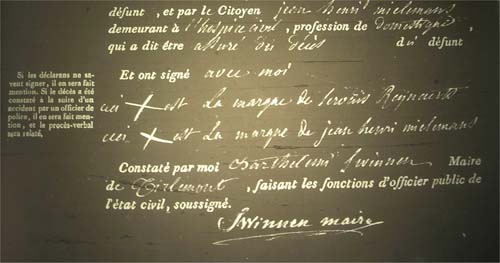 défunt, et par le Citoyen jean henri mielemans
demeurant à l'hospice civil, profession de domestique,
qui a dit être assuré du décès du défunt
Et ont signé avec moi
ceci + est La marque de Servais Reynaerts
ceci + est La marque de jean henri mielemans
Constaté par moi Barthelemi Swinnen Maire
de Tirlemont, faisant les fonctions d'officier public de
l'état civil, soussigné.
SWinnen maire
Si les déclarans ne sa-
vent signer, il en sera fait
mention. Si le décès a été
constaté à la suite d'un
accident par un officier de
police, il en sera fait men-
tion, et le procès-verbal
sera relaté.